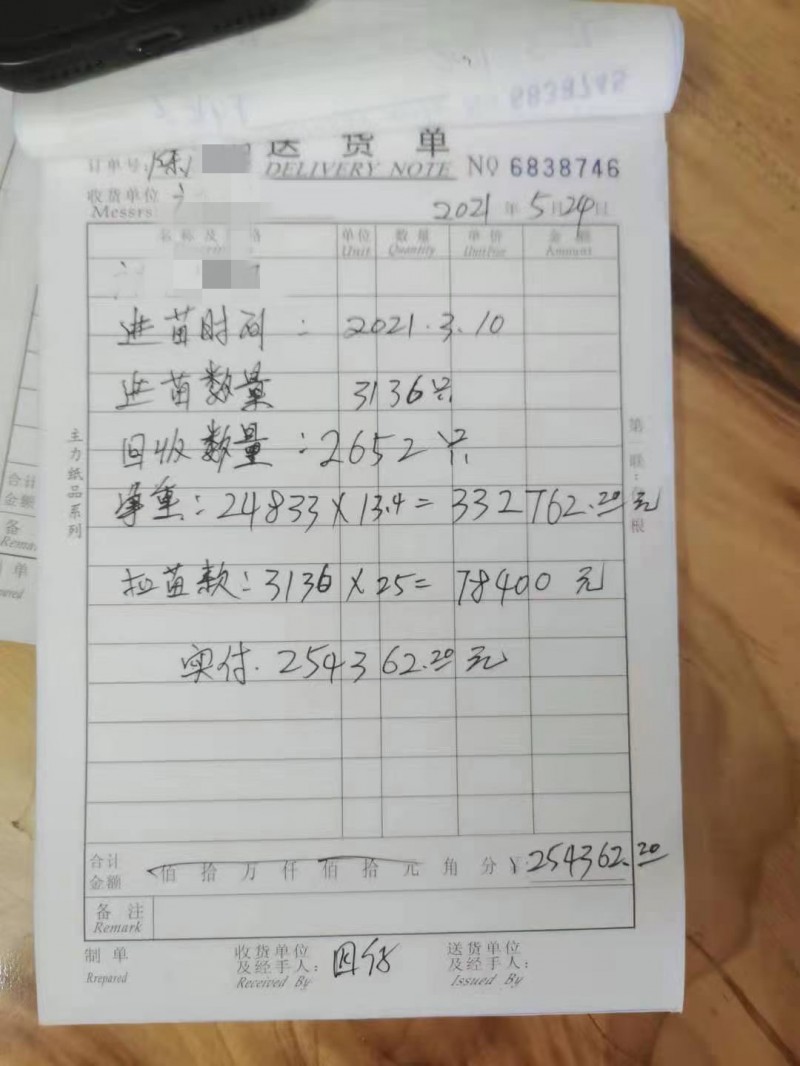 送货单
订单号: DELIVERY NOTE № 6838746
收货单位
Messrs 2021年5月24日
单位 数量 单价 金额
Unit Quantity UnitPrice Amount
进苗时间：2021.3.10
进苗数量 3136只
回收数量：2652只
净重：24833×13.4=332762.20元
扣苗款：3136×25=78400元
实付.254362.20元
合计
金额 佰拾万仟佰拾元角分￥254362.20
备注
Remark
制单
Rrepared
收货单位
及经手人：
Received By
送货单位
及经手人：
Issued By
主力纸品系列
第一联：
根
合计
金额
备